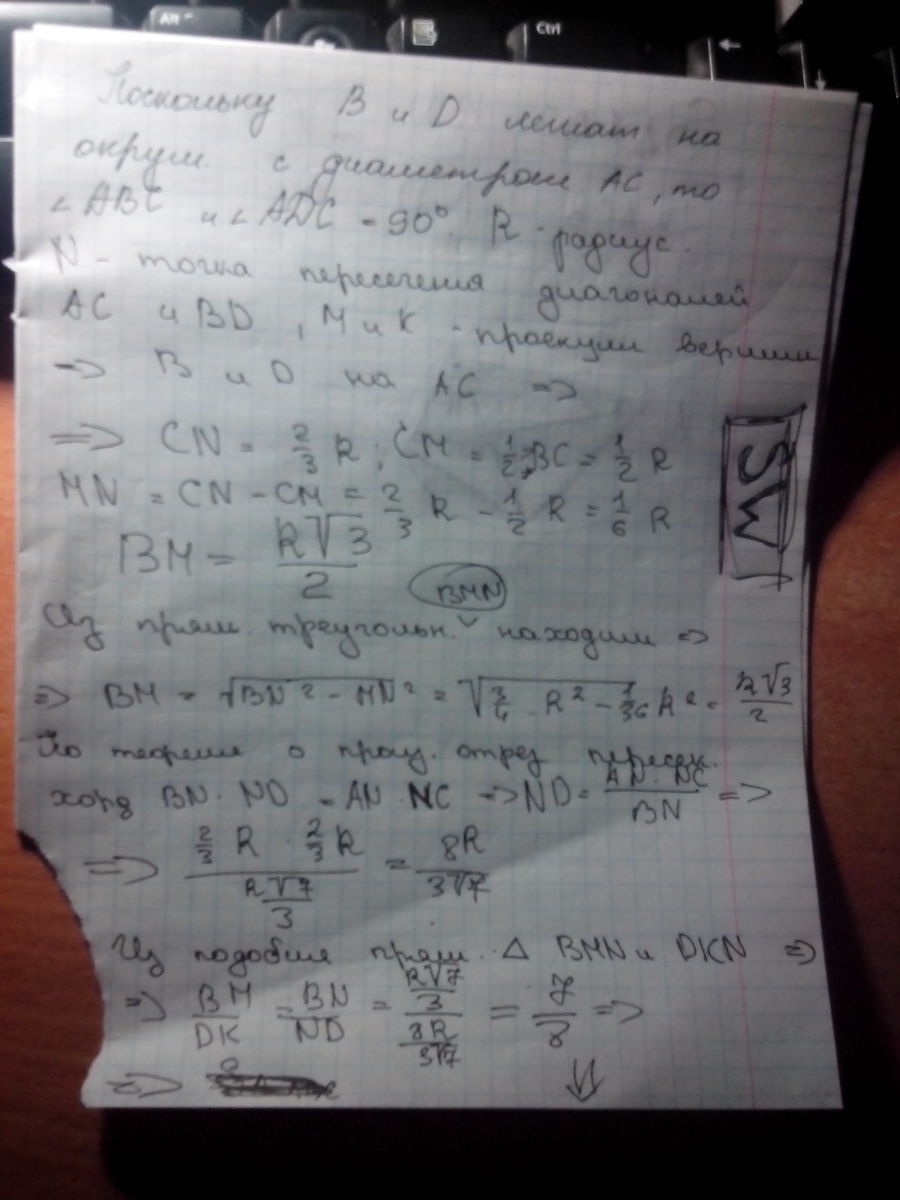 Alt
Ctrl
Поскольку B и D лежат на
окруж. с диаметром AC, то
∠ABC и ∠ADC = 90°. R - радиус.
N - точка пересечения диагоналей
AC и BD, M и K - проекции вершин
=> B и D на AC =>
=> CN = 2/3 R; CM = 1/2 BC = 1/2 R
MN = CN - CM = 2/3 R - 1/2 R = 1/6 R
BM = R√3/2
SW
BMN
Из прям. треугольн. находим =>
=> BM = √BN² - MN² = √7/4 R² - 1/36 R² = R√3/2
По теореме о произ. отрез пересек.
хорд BN · ND = AN · NC => ND = AN · NC/BN =>
=> 2/3 R · 2/3 R / R√7/3 = 8R/3√7
Из подобия прям. Δ BMN и DKN =>
=> BM/DK = BN/ND = R√7/3 / 8R/3√7 = 7/8 =>
=> ⇓